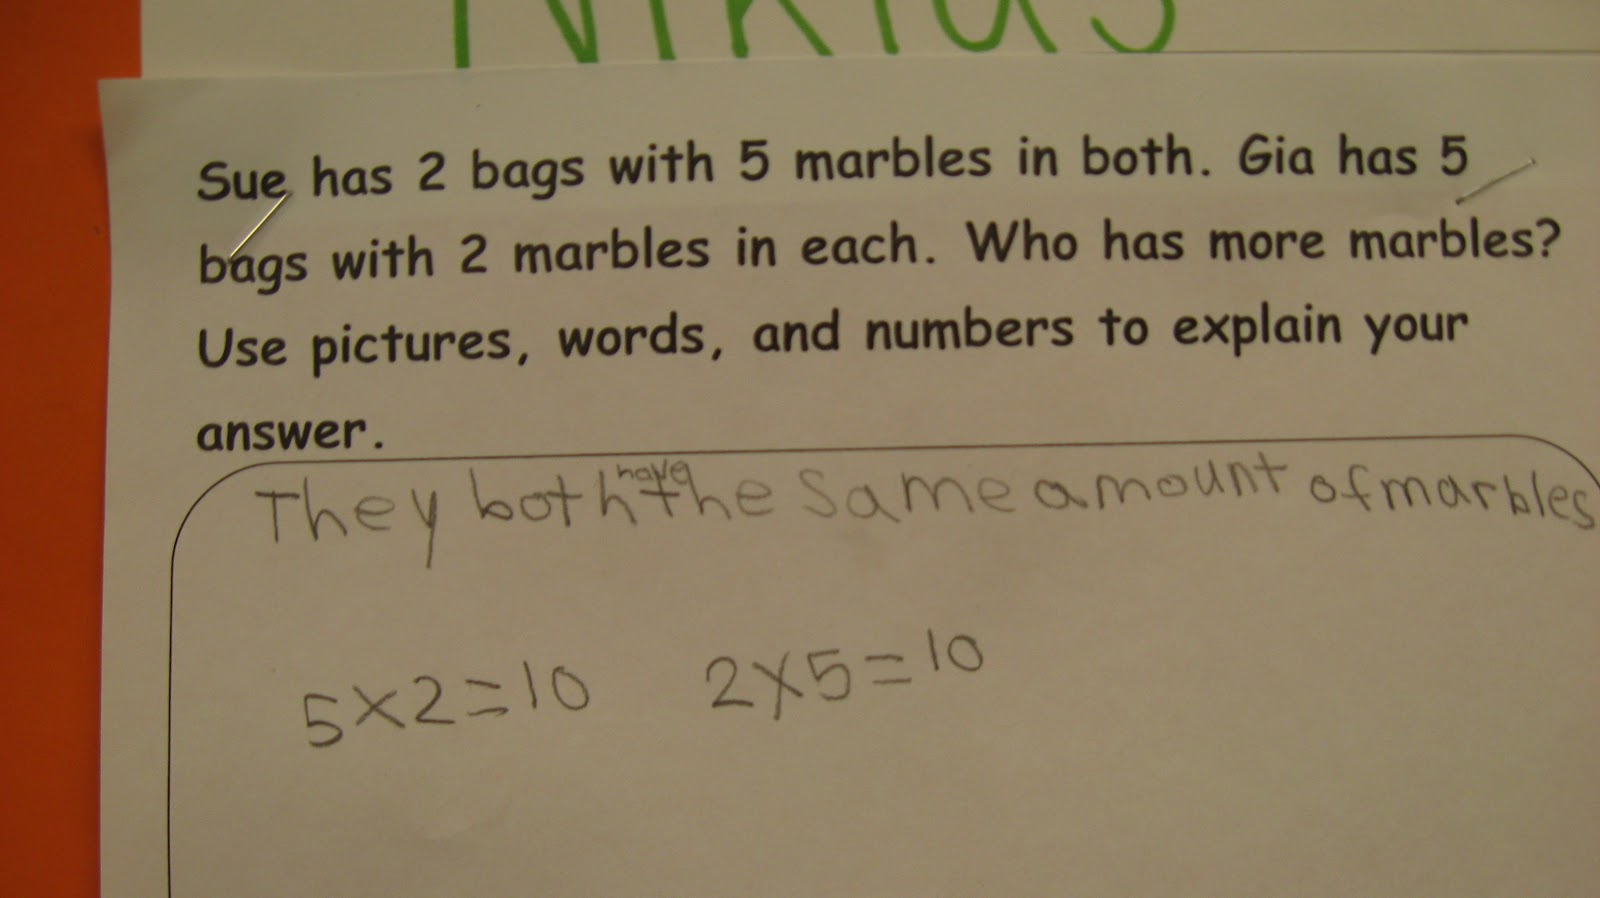 Sue has 2 bags with 5 marbles in both. Gia has 5
bags with 2 marbles in each. Who has more marbles?
Use pictures, words, and numbers to explain your
answer.
They both have the same amount of marbles
5×2=10 2×5=10